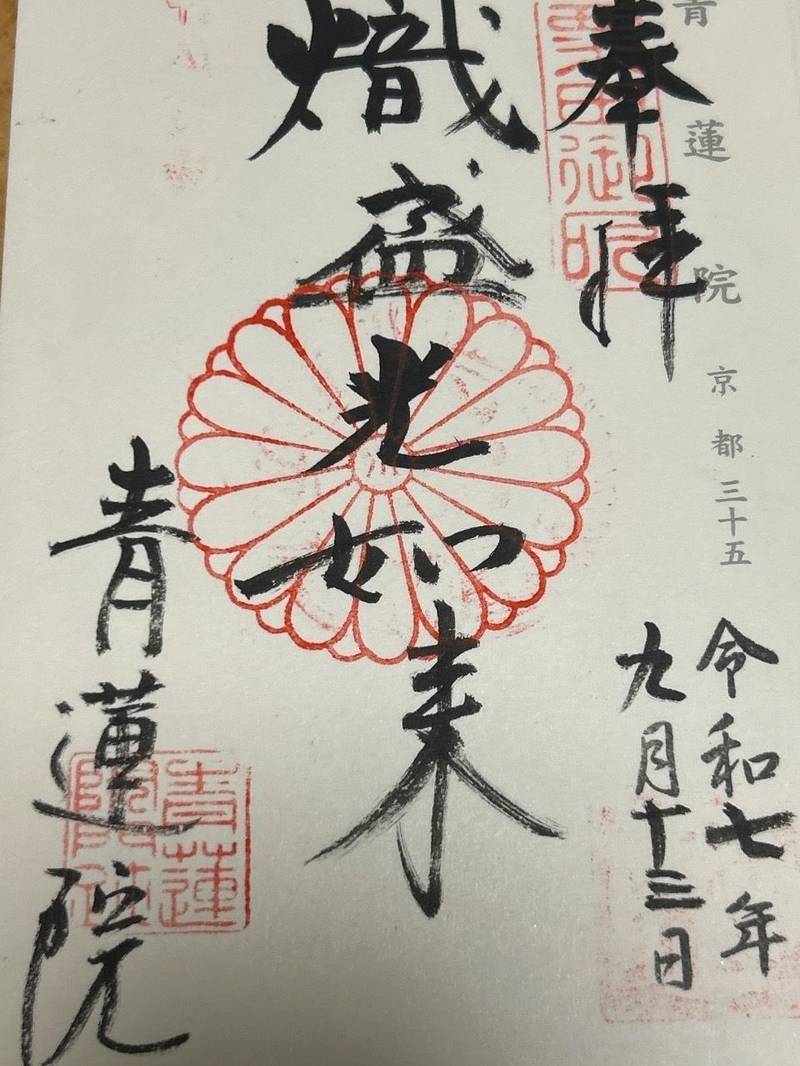 青蓮院 京都三十五
奉拝
令和七年
九月十三日
熾盛光如来
青蓮院
青蓮